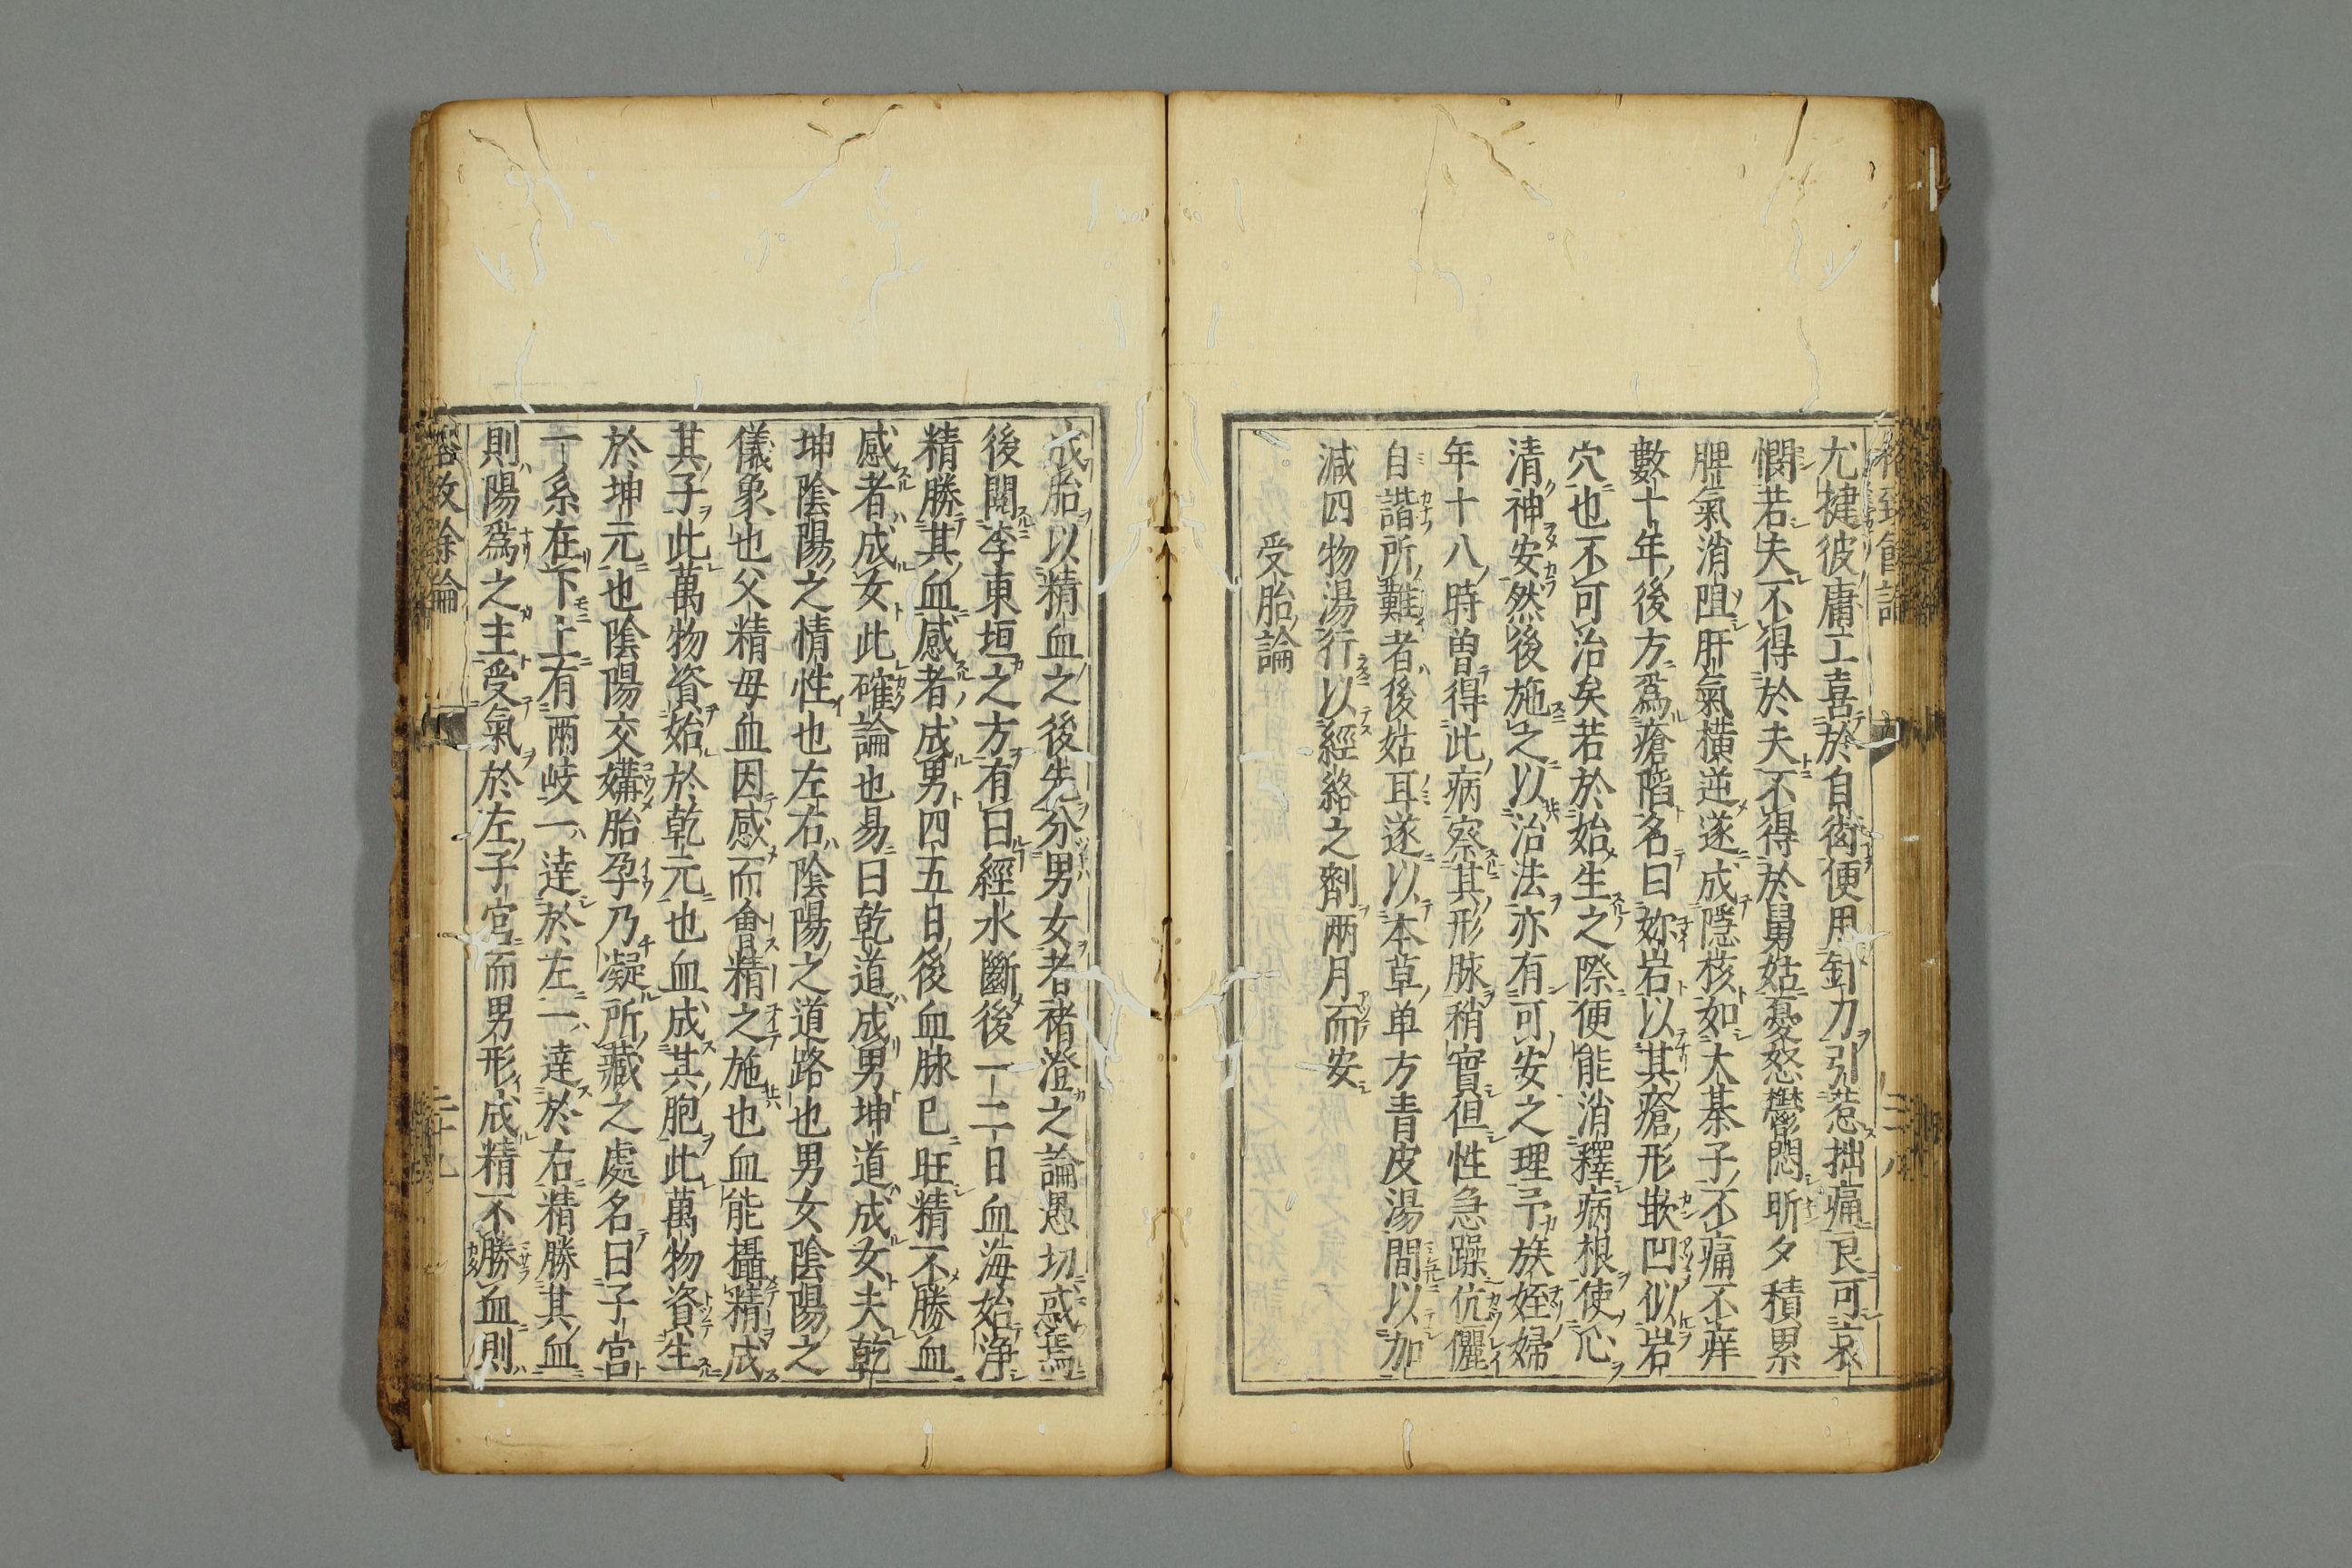 尤犍彼庸工喜於自衒便用針刀引惹拙痛良可哀
憫若夫不得於夫不得於舅姑憂怒鬱悶昕夕積累
脾氣消阻肝氣横逆遂成隱核如大棊子不痛不痒
數十年後方爲瘡䧟名曰妳岩以其瘡形嵌凹似岩
穴也不可治矣若於始生之際便能消釋病根使心
清神安然後施之以治法亦有可安之理予族姪婦
年十八時曽得此病察其形脉稍實但性急躁伉儷
自諧所難者後姑耳遂以本草单方青皮湯間以加
減四物湯行以經絡之劑兩月而安
受胎論
成胎以精血之後先分男女者褚澄之論愚切惑焉
後閱李東垣之方有曰經水斷後一二日血海始淨
精勝其血感者成男四五日後血脉已旺精不勝血
感者成女此確論也易曰乾道成男坤道成女夫乾
坤陰陽之情性也左右陰陽之道路也男女陰陽之
儀象也父精母血因感而會精之施也血能攝精成
其子此萬物資始於乾元也血成其胞此萬物資生
於坤元也陰陽交媾胎孕乃凝所藏之處名曰子宮
一系在下上有兩岐一達於左一達於右精勝其血
則陽爲之主受氣於左子宮而男形成精不勝血則
格致餘論
二十九